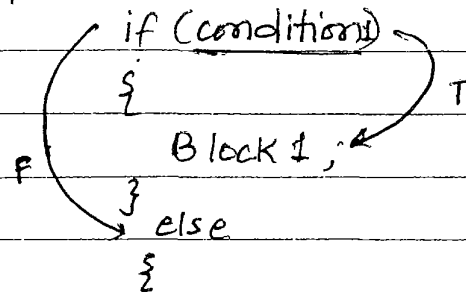 if (condition1)
{
T
Block 1 ;
F
}
else
{